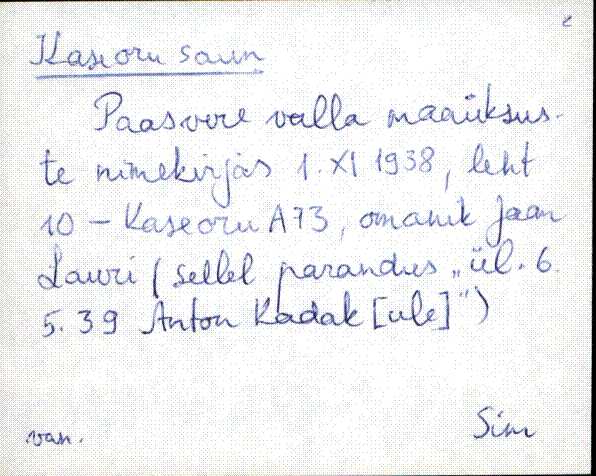 Kaseoru saun
Paasvere valla maaüksus-
te nimekirjas 1. XI 1938, leht
10 – Kaseoru A73, omanik Jaan
Lauri (sellel parandus „ül. 6.
5.39 Anton Kadak [ule]")
van. Sim